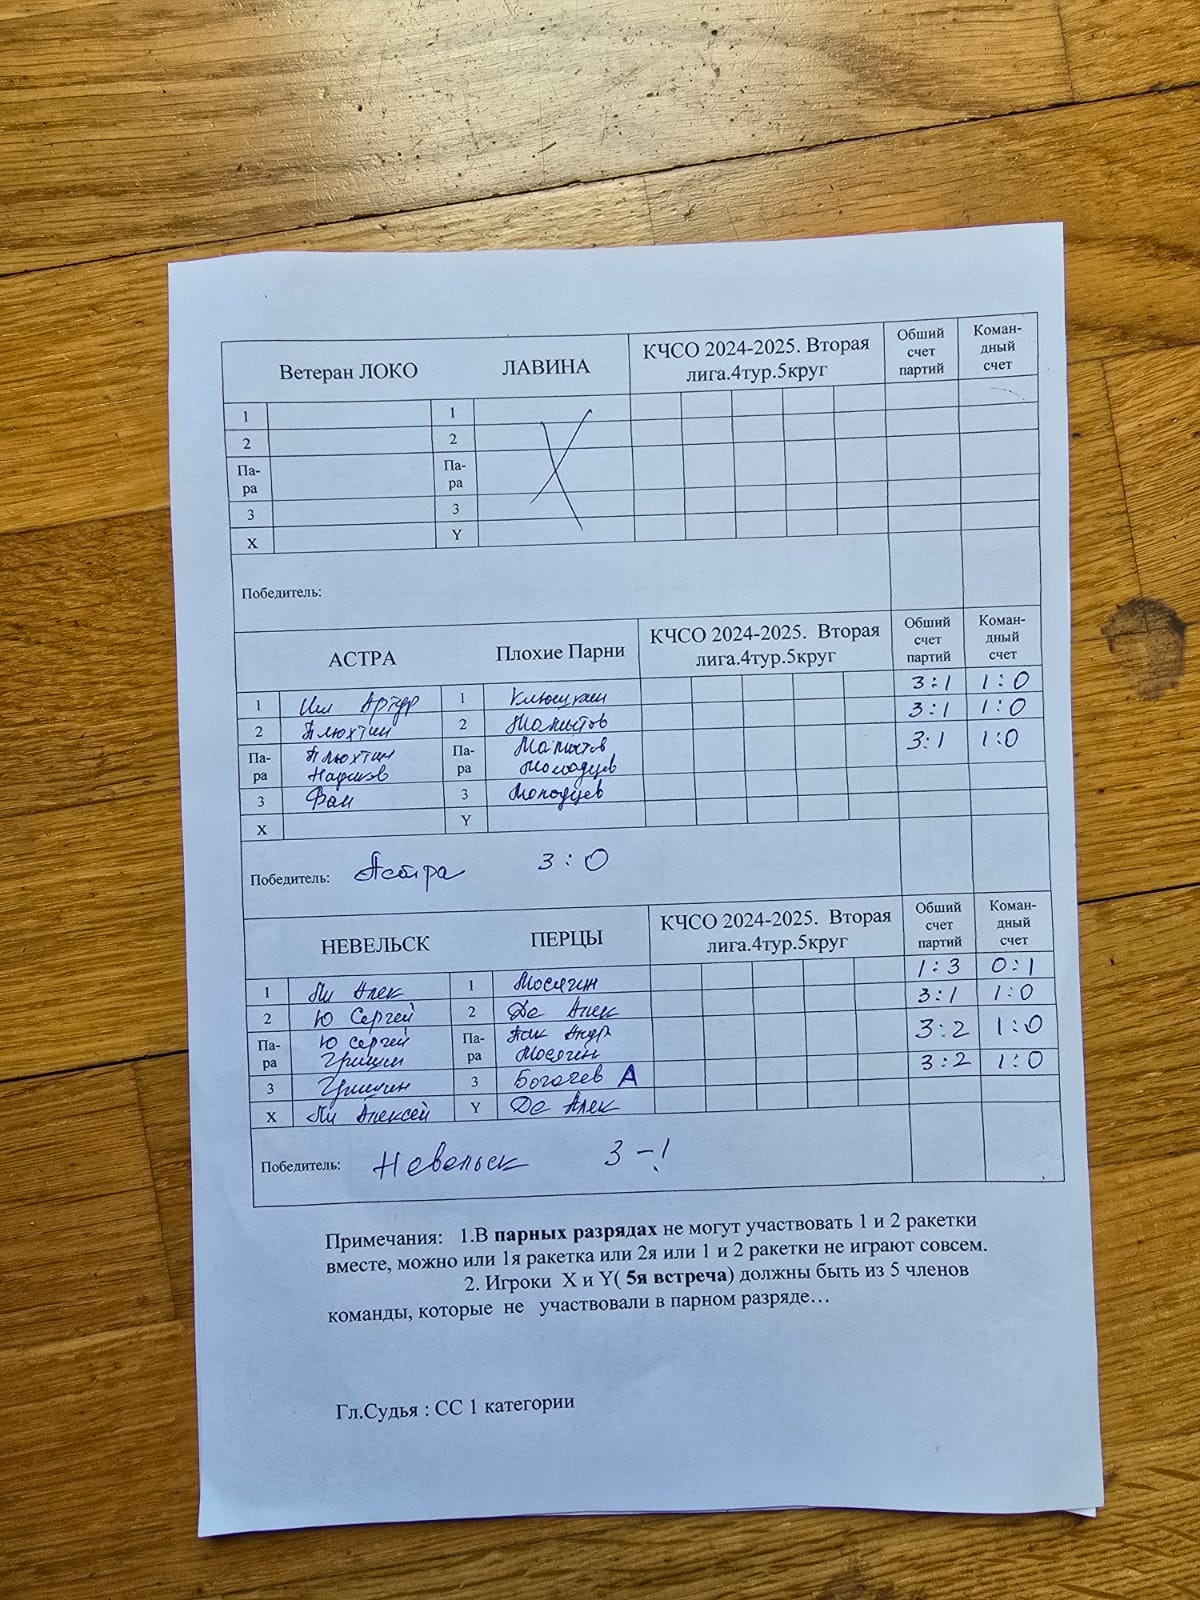 Ветеран ЛОКО ЛАВИНА КЧСО 2024-2025. Вторая лига.4тур.5круг Обший счет партий Коман-дный счет
1 1
2 2
Па-ра Па-ра
3 3
X Y
Победитель:
АСТРА Плохие Парни КЧСО 2024-2025. Вторая лига.4тур.5круг Обший счет партий Коман-дный счет
1 Артур 1 3:1 1:0
2 Плюхтин 2 3:1 1:0
Па-ра Плюхтин Па-ра 3:1 1:0
Молодцев
3 Фан 3 Молодцев
X Y
Победитель: Астра 3:0
НЕВЕЛЬСК ПЕРЦЫ КЧСО 2024-2025. Вторая лига.4тур.5круг Обший счет партий Коман-дный счет
1 Ли Алек 1 Мосягин 1:3 0:1
2 Ю Сергей 2 Де Алек 3:1 1:0
Па-ра Ю Сергей Па-ра Пак Андр 3:2 1:0
Гришин Мосягин
3 Гришин 3 Богачев А 3:2 1:0
X Ли Алексей Y Де Алек
Победитель: Невельск 3-1
Примечания: 1.В парных разрядах не могут участвовать 1 и 2 ракетки
вместе, можно или 1я ракетка или 2я или 1 и 2 ракетки не играют совсем.
2. Игроки X и Y( 5я встреча) должны быть из 5 членов
команды, которые не участвовали в парном разряде…
Гл.Судья : СС 1 категории